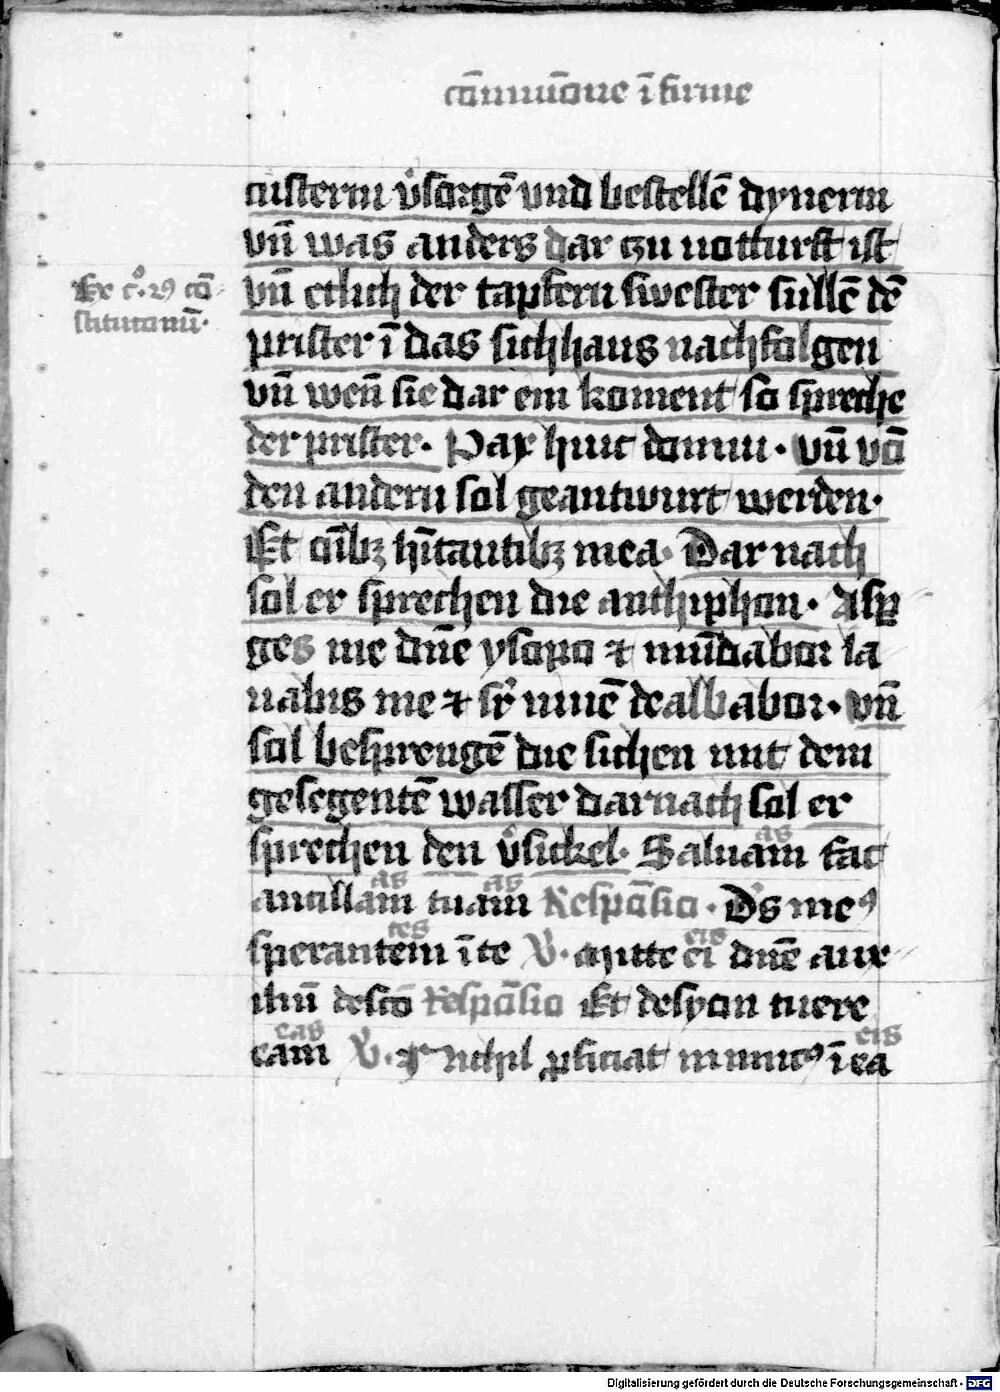 co̅muniu̅one i̅ firme
custerin v̾sorge̅ vnd bestelle̅ dynerin
vn̅ was anders dar czu notturft ist
vn̅ etlich der tapfern swester sulle̅ de̅
Ex co̅
stitutio nu̅·
prister i̅ das sichhaus nachfolgen
vn̅ wen̅ sie dar ein koment so spreche
der prister· Pax huic domui· vn̅ vo̅
den andern sol geantwurt werden·
Et o̅ibꝫ hi̅tantibꝫ in ea· Dar nach
sol er sprechen die anthiphon· Asp
ges me dn̅e ysopo ⁊ mu̅dabor la
uabis me ⁊ sr̾ niue̅ dealbabor· vn̅
sol besprenge̅ die sichen mit dem
gesegente̅ wasser darnach sol er
sprechen den v̾sickel· Saluam fac
as
ancillam tuam Respo̅sio· D̾s meꝰ
as as
sperantem i̅ te V̾· Mitte ei dn̅e aux
tes eis
iliu̅ de sc̅o Respo̅sio Et de syon tuere
eam V̾· nichil ꝓficiat inimicꝰ i̅ ea
eas eis
Digitalisierung gefördert durch die Deutsche Forschungsgemeinschaft - DFG